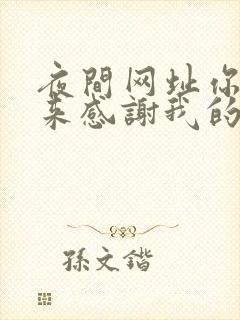 夜間网址你
来感謝我的
孫文鍇